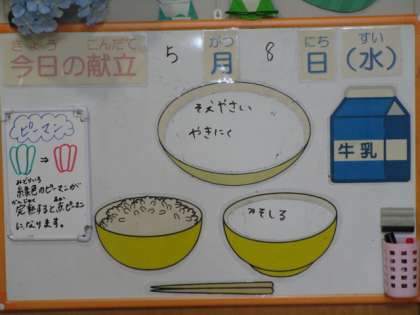 きょう こんだて
今日の献立
5
がつ
月
8
にち
日
すい
(水)
やきにく
みそしる
牛乳
ピーマン
⇒
みどりいろ
緑色のピーマンが
かんじゅく あか
完熟すると赤ピーマン
になります。